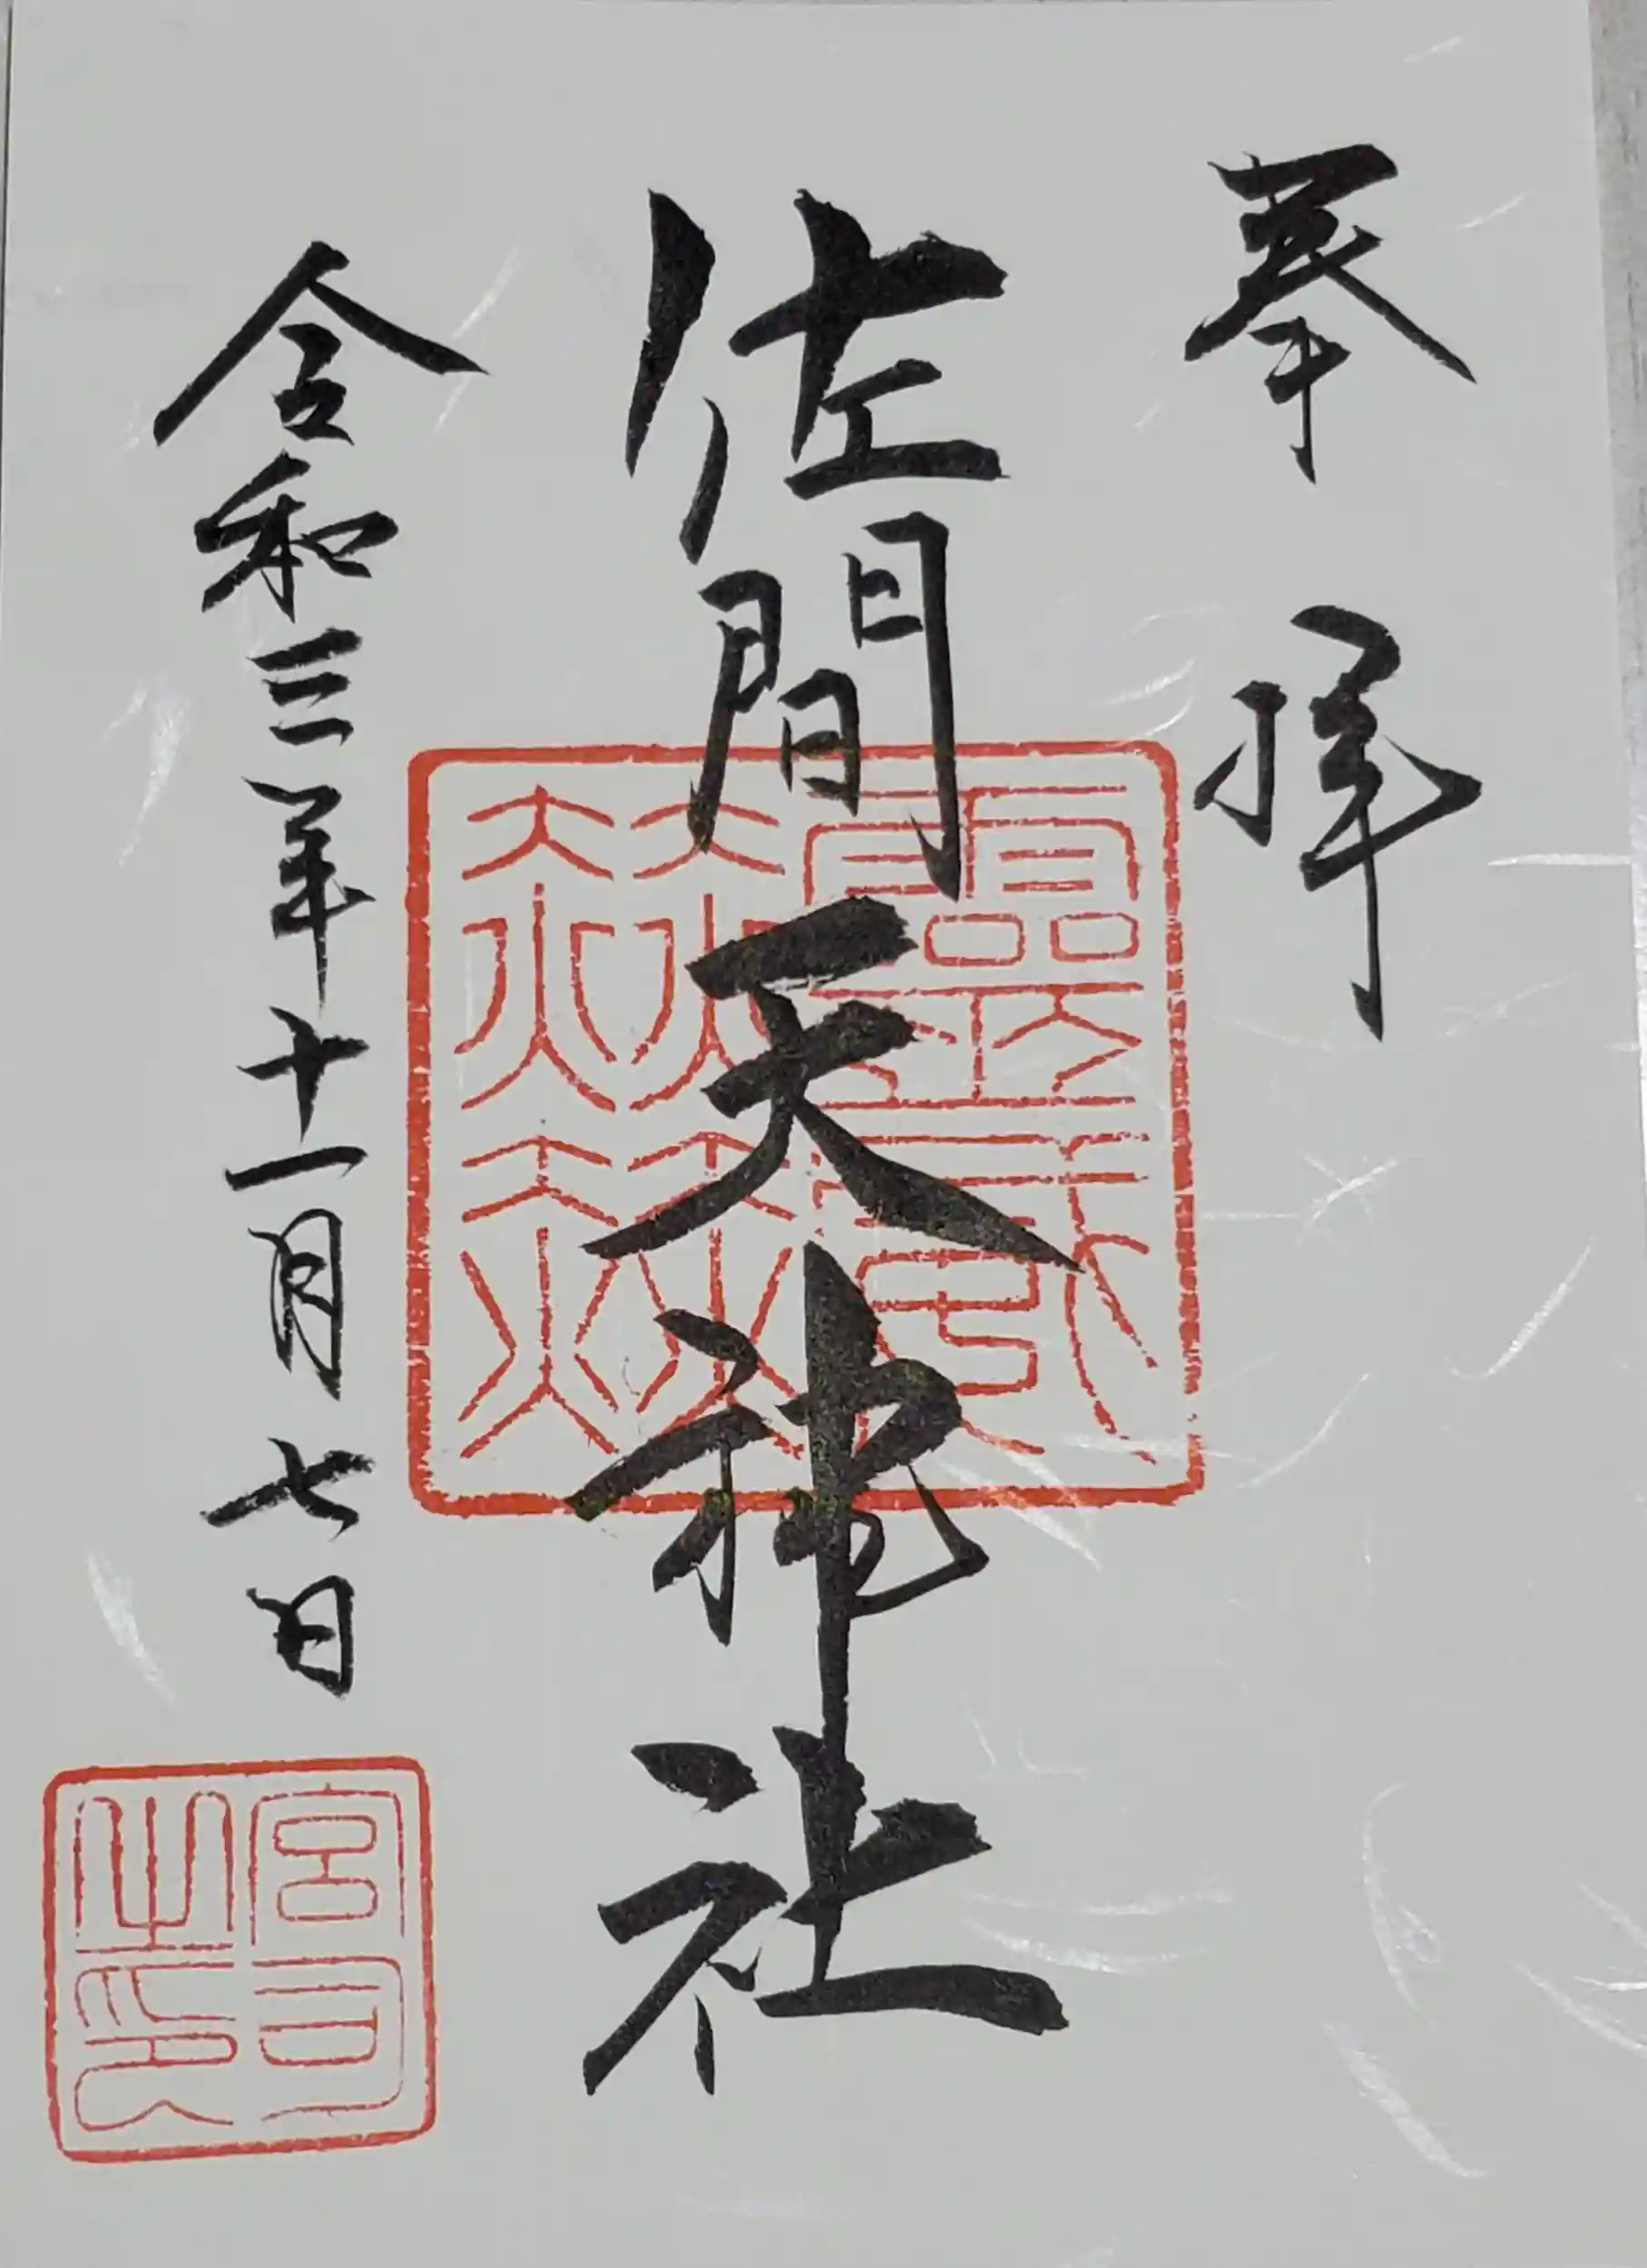 奉拝
佐間天神社
令和三年十一月七日
宮司
之印